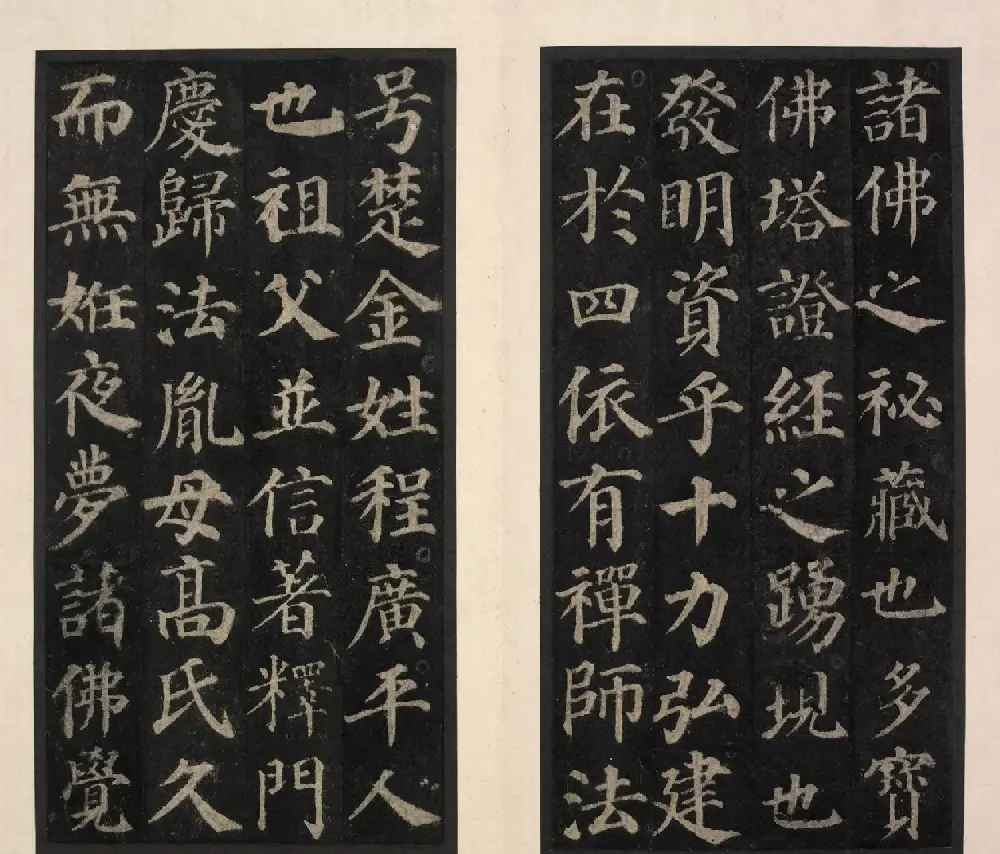 諸佛之祕藏也多寶
佛塔證經之踴現也
發明資乎十力弘建
在於四依有禪師法
号楚金姓程廣平人
也祖父並信著釋門
慶歸法胤母高氏久
而無姙夜夢諸佛覺